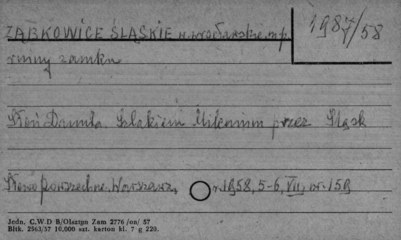 ZĄBKOWICE ŚLĄSKIE w. wrocławskie, m.p.
1987/58
ruiny zamku
Szlakiem Milenium przez Śląsk
Słowo Powszechne. Warszawa, r. 1958, 5-6, VII, nr. 159
Jedn. C.W.D B/Olsztyn Zam 2776 /on/ 57
Bltk. 2563/57 10,000 szt. karton kl. 7 g 220.